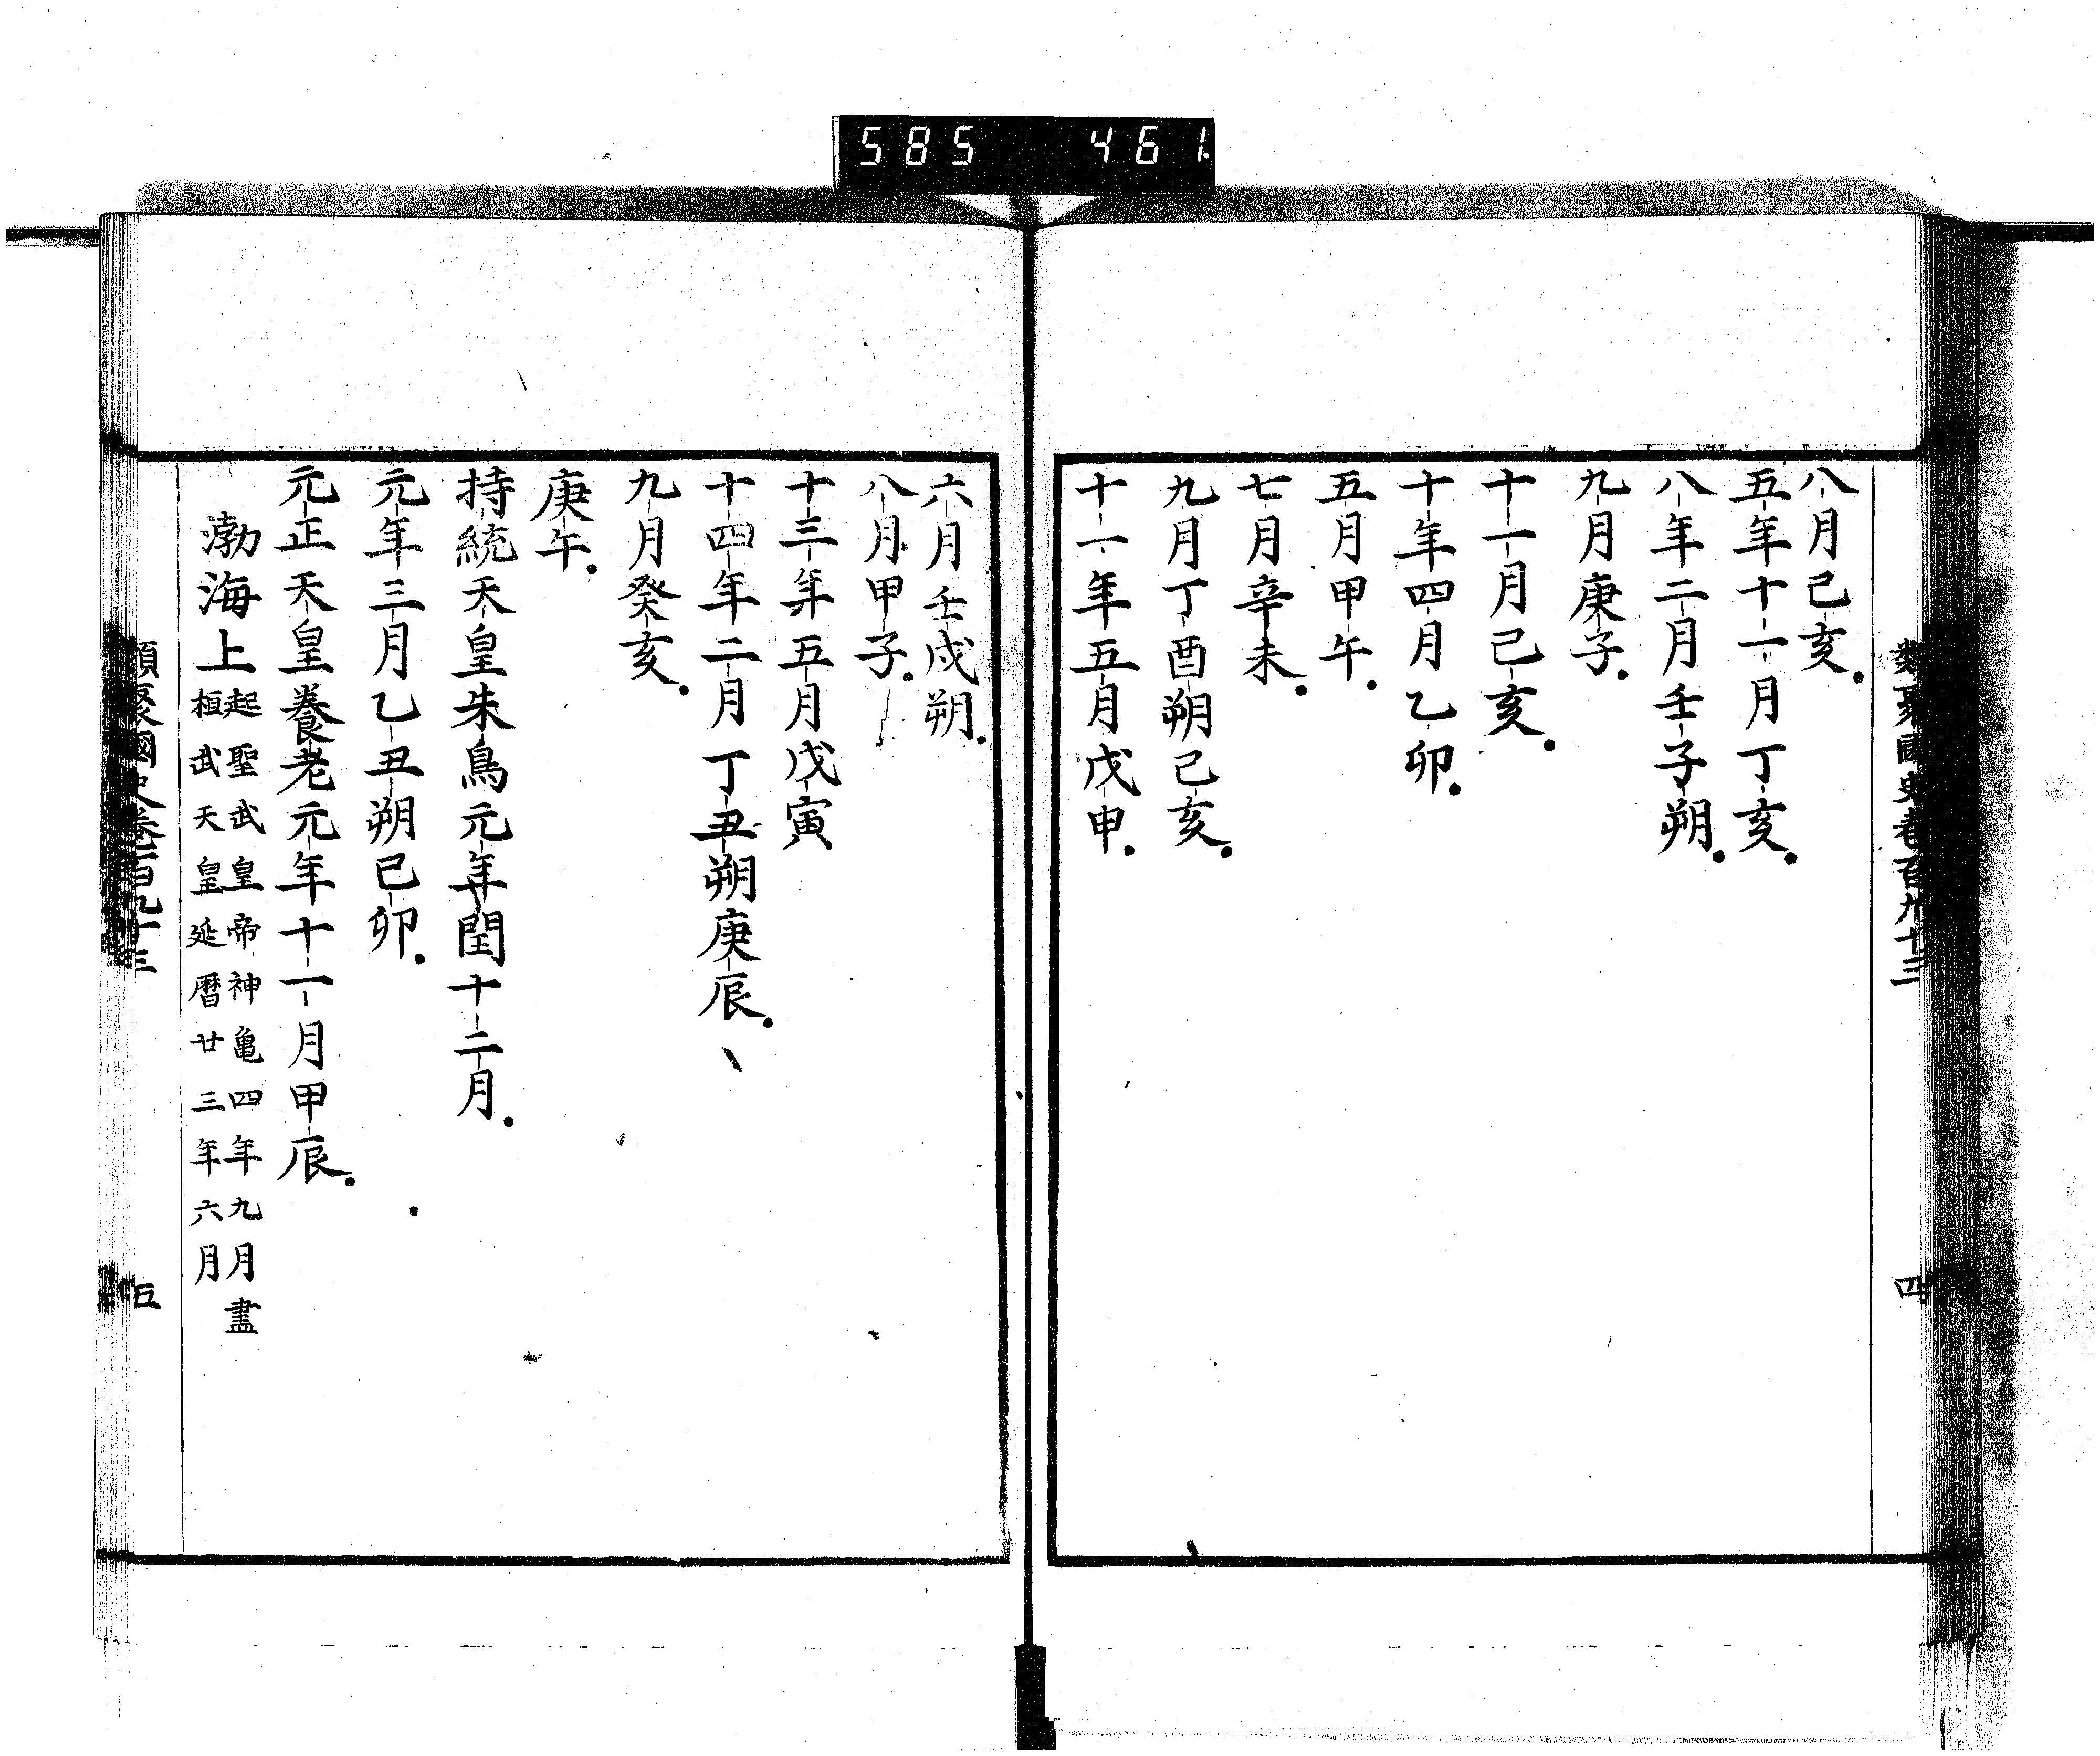 585 461
類聚國史卷百九十三
四
八月己亥
五年十一月丁亥
八年二月壬子朔
九月庚子
十一月己亥
十年四月乙卯
五月甲午
七月辛未
九月丁酉朔己亥
十一年五月戊申
六月壬戌朔
八月甲子
十三年五月戊寅
十四年二月丁丑朔庚辰
九月癸亥
庚午
持統天皇朱鳥元年閏十二月
元年三月乙丑朔己卯
元正天皇養老元年十一月甲辰
渤海上
起聖武皇帝神亀四年九月盡
桓武天皇延暦廿三年六月
類聚國史卷百九十三
五